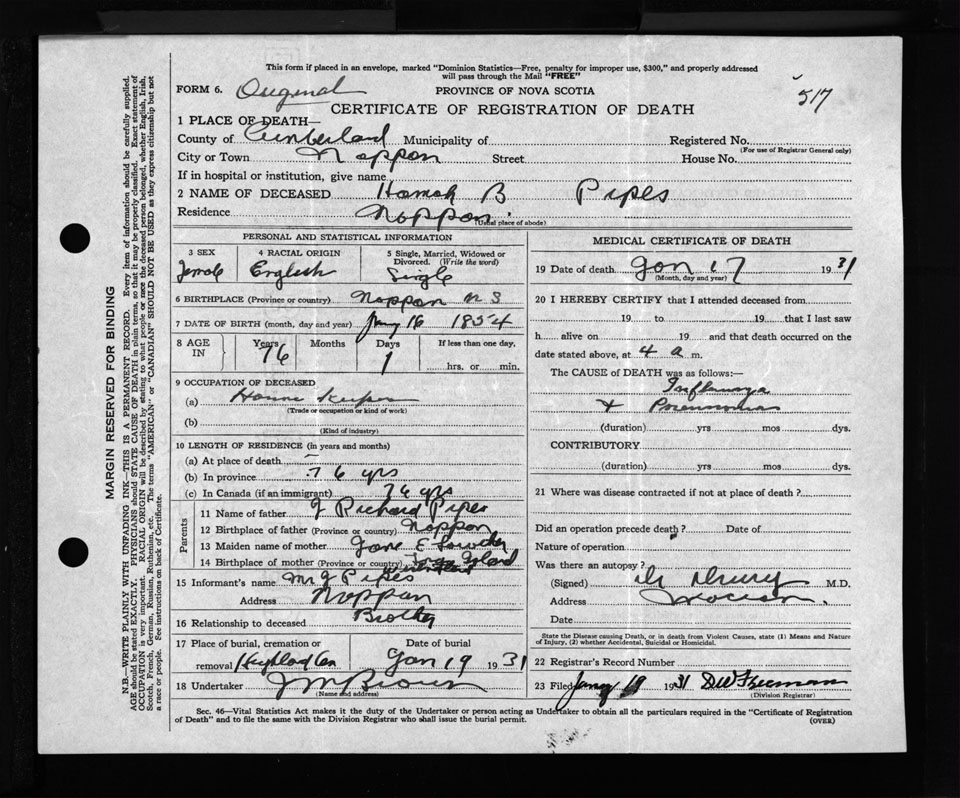 This form if placed in an envelope, marked "Dominion Statistics—Free, penalty for improper use, $300," and properly addressed
will pass through the Mail "FREE"
FORM 6. Original PROVINCE OF NOVA SCOTIA 517
CERTIFICATE OF REGISTRATION OF DEATH
1 PLACE OF DEATH—
County of Cumberland Municipality of Registered No.
(For use of Registrar General only)
City or Town Nappan Street House No.
If in hospital or institution, give name
2 NAME OF DECEASED Hannah B Pipes
Residence Nappan
(Usual place of abode)
PERSONAL AND STATISTICAL INFORMATION
3 SEX Female 4 RACIAL ORIGIN English 5 Single, Married, Widowed or Divorced. (Write the word) Single
6 BIRTHPLACE (Province or country) Nappan N S
7 DATE OF BIRTH (month, day and year) Jany 16 1854
8 AGE IN Years 76 Months Days 1 If less than one day, hrs. or min.
9 OCCUPATION OF DECEASED
(a) House Keeper
(Trade or occupation or kind of work)
(b)
(Kind of industry)
10 LENGTH OF RESIDENCE (in years and months)
(a) At place of death
(b) In province 76 yrs
(c) In Canada (if an immigrant) 76 yrs
Parents
11 Name of father J Richard Pipes
12 Birthplace of father (Province or country) Nappan
13 Maiden name of mother Jane E
14 Birthplace of mother (Province or country)
15 Informant's name Mr J Pipes
Address Nappan
16 Relationship to deceased Brother
17 Place of burial, cremation or removal Highland Cem Date of burial Jan 19 1931
18 Undertaker J M Brown
(Name and address)
MEDICAL CERTIFICATE OF DEATH
19 Date of death Jan 17 1931
(Month, day and year)
20 I HEREBY CERTIFY that I attended deceased from
19 to 19 that I last saw
h alive on 19 and that death occurred on the
date stated above, at 4 a m.
The CAUSE OF DEATH was as follows:—
Influenza
+ Pneumonia
(duration) yrs mos dys.
CONTRIBUTORY
(duration) yrs mos dys.
21 Where was disease contracted if not at place of death?
Did an operation precede death? Date of
Nature of operation
Was there an autopsy?
(Signed) Dr Drury M.D.
Address
Date
State the Disease causing Death, or in death from Violent Causes, state (1) Means and Nature
of Injury, (2) whether Accidental, Suicidal or Homicidal.
22 Registrar's Record Number
23 Filed Jany 19 1931 D W Freeman
(Division Registrar)
Sec. 46—Vital Statistics Act makes it the duty of the Undertaker or person acting as Undertaker to obtain all the particulars required in the "Certificate of Registration
of Death" and to file the same with the Division Registrar who shall issue the burial permit.
(OVER)
MARGIN RESERVED FOR BINDING
N.B.—WRITE PLAINLY WITH UNFADING INK—THIS IS A PERMANENT RECORD. Every item of information should be carefully supplied.
AGE should be stated EXACTLY. PHYSICIANS should STATE CAUSE OF DEATH in plain terms, so that it may be properly classified. Exact statement of
OCCUPATION is very important. RACIAL ORIGIN will be described by stating to what people or race the deceased person belonged, whether English, Irish,
Scotch, French, German, Russian, Ruthenian, etc. The terms "AMERICAN" or "CANADIAN" SHOULD NOT BE USED as they express citizenship but not
a race or people. See instructions on back of Certificate.